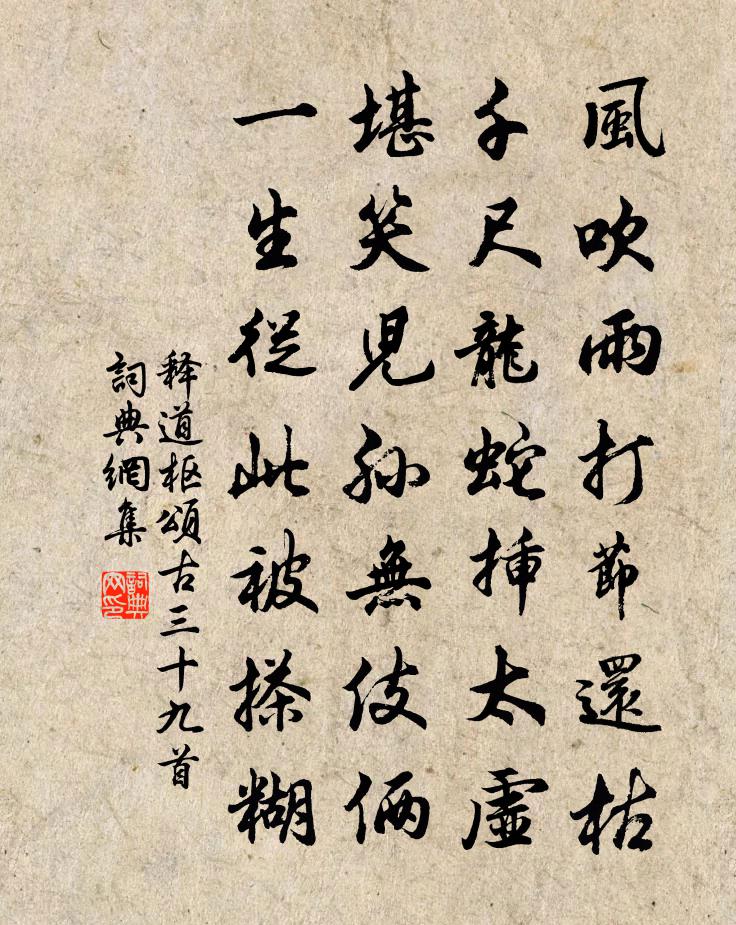 風吹雨打節還枯
千尺龍蛇揷太虛
堪笑兒孫無伎倆
一生從此被搽糊
释道枢頌古三十九首
詞典網集
詞典
网印